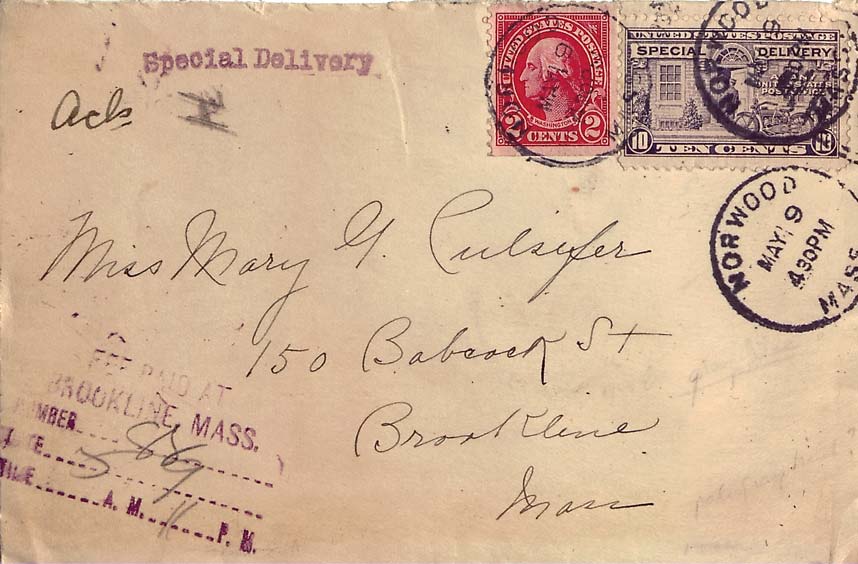 Special Delivery
Ack
UNITED STATES POSTAGE
WASHINGTON
2 CENTS 2
UNITED STATES POSTAGE
SPECIAL DELIVERY
10 TEN CENTS 10
NORWOOD
MAY 9
4 30 PM
MASS
Miss Mary G. Pulsifer
150 Babcock St
Brookline
Mass
FEE PAID AT
BROOKLINE, MASS.
NUMBER
DATE
TIME A. M. 11 P. M.